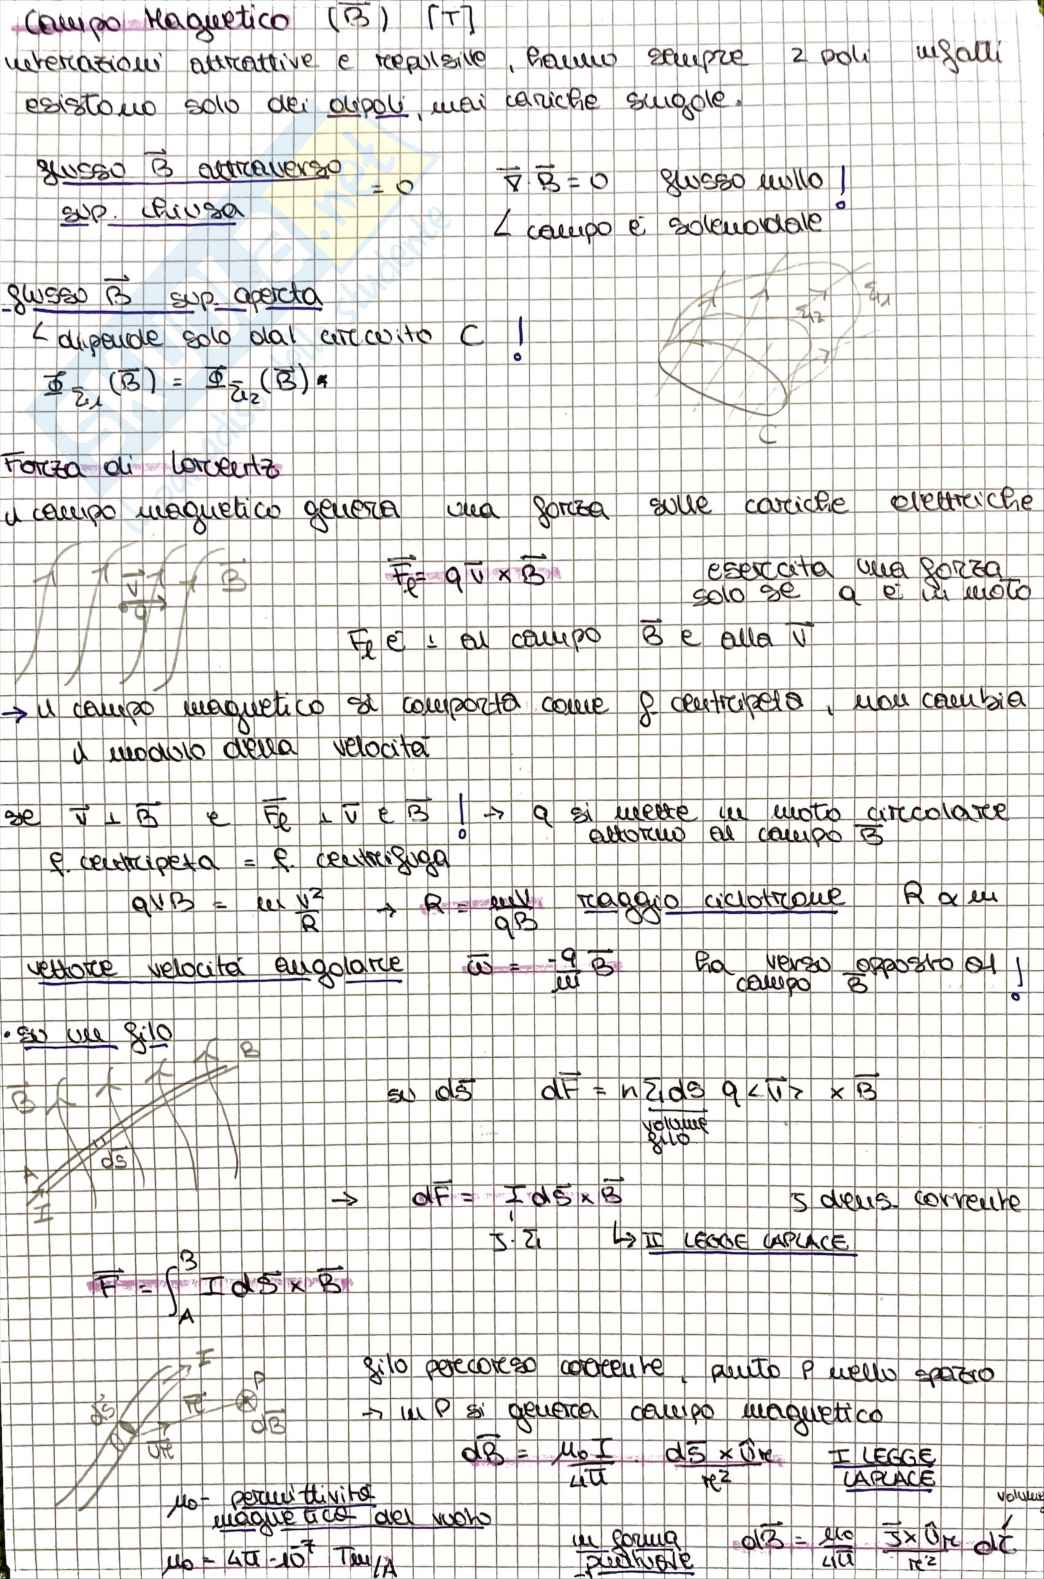 Campo Magnetico (B⃗) [T]
interazioni attrattive e repulsive, hanno sempre 2 poli infatti
esistono solo dei dipoli, mai cariche singole.
flusso B⃗ attraverso sup. chiusa = 0
∇⃗·B⃗ = 0 flusso nullo !
∟ campo è solenoidale
flusso B⃗ sup. aperta
∟ dipende solo dal circuito C !
Φ_Σ1(B⃗) = Φ_Σ2(B⃗)
Σ1
Σ2
C
Forza di Lorentz
il campo magnetico genera una forza sulle cariche elettriche
v⃗ B⃗
q
F⃗ℓ = q v⃗ × B⃗
esercita una forza
solo se q è in moto
Fℓ è ⊥ al campo B⃗ e alla v⃗
→ il campo magnetico si comporta come f. centripeta, non cambia
il modulo della velocità
se v⃗ ⊥ B⃗ e F⃗ℓ ⊥ v⃗ e B⃗ ! → q si mette in moto circolare
attorno al campo B⃗
f. centripeta = f. centrifuga
qvB = m v²/R → R = mv/qB raggio ciclotrone R ∝ m
vettore velocità angolare ω⃗ = -q/m B⃗ ha verso opposto al !
campo B⃗
• su un filo
B
B⃗
ds⃗
A
I
su ds⃗ dF⃗ = n Σ ds q <v⃗> × B⃗
volume
filo
→ dF⃗ = I ds⃗ × B⃗ J dens. corrente
J·Σ ↳ II LEGGE LAPLACE
F⃗ = ∫_A^B I ds⃗ × B⃗
I
ds⃗ r⃗ P
dB⃗
ûr
filo percorso corrente, punto P nello spazio
→ in P si genera campo magnetico
dB⃗ = μ0 I/4π · ds⃗ × ûr/r² I LEGGE
LAPLACE
μ0 - permittività
magnetica del vuoto
μ0 = 4π·10⁻⁷ Tm/A
in forma
puntuale
dB⃗ = μ0/4π J⃗ × ûr/r² dτ
volume